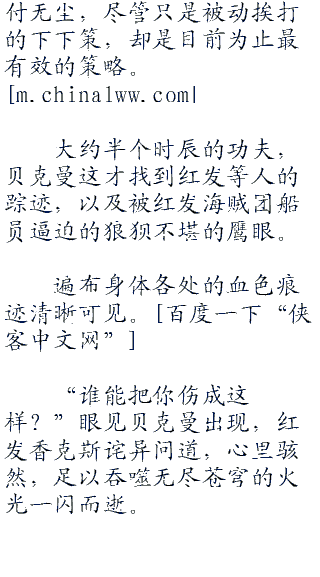 付无尘，尽管只是被动挨打
的下下策，却是目前为止最
有效的策略。
[m.chinalww.com|
大约半个时辰的功夫，
贝克曼这才找到红发等人的
踪迹，以及被红发海贼团船
员逼迫的狼狈不堪的鹰眼。
遍布身体各处的血色痕
迹清晰可见。[百度一下“侠
客中文网”]
“谁能把你伤成这
样？”眼见贝克曼出现，红
发香克斯诧异问道，心里骇
然，足以吞噬无尽苍穹的火
光一闪而逝。